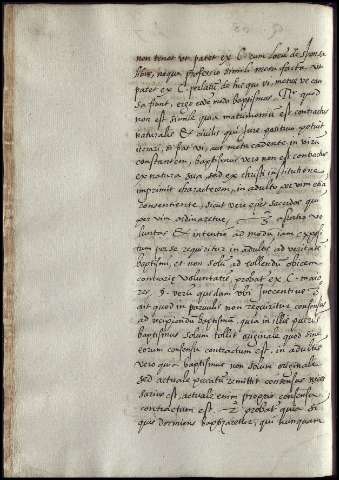 non tenet ut patet ex C. cum locū de sponsa
libus, neque professio simili metu facta ut
patet ex C. prelatū de his que vi, metus ve cau
sa fiunt, ergo eodē modo baptismus. Nr quod
non est simile quia matrimoniū est contractus
naturalis & civilis qui jure gentium potuit
irritari, si fiat vi, aut metu cadente in virū
constantem, baptismus vero non est contractus
ex natura sua sed ex christi institutione
imprimit characterem, in adulto per vim etiā
consentiente, sicut vere esset sacerdos qui
per vim ordinaretur, vo
luntas & intentio ad modū iam exposi
tum per se requiritur in adultis ad veritatē
baptismi, et non solū ad tollendū obicem
contrarie voluntatis, probat ex C. maio
res §. verū quidam ubi Inocentius 3
ait quod in parvulis non requiritur consensus
ad recipiendū baptismū quia in illis pueris
baptismus solum tollit originale quod sine
eorum consensu contractum est. in adultis
vero quia baptismus non solum originale
sed actuale pecatū remittit consensus neces
sarius est, actuale enim proprio consensu
contractum est. 2 probat quia si
quis dormiens baptizaretur, qui nunquam